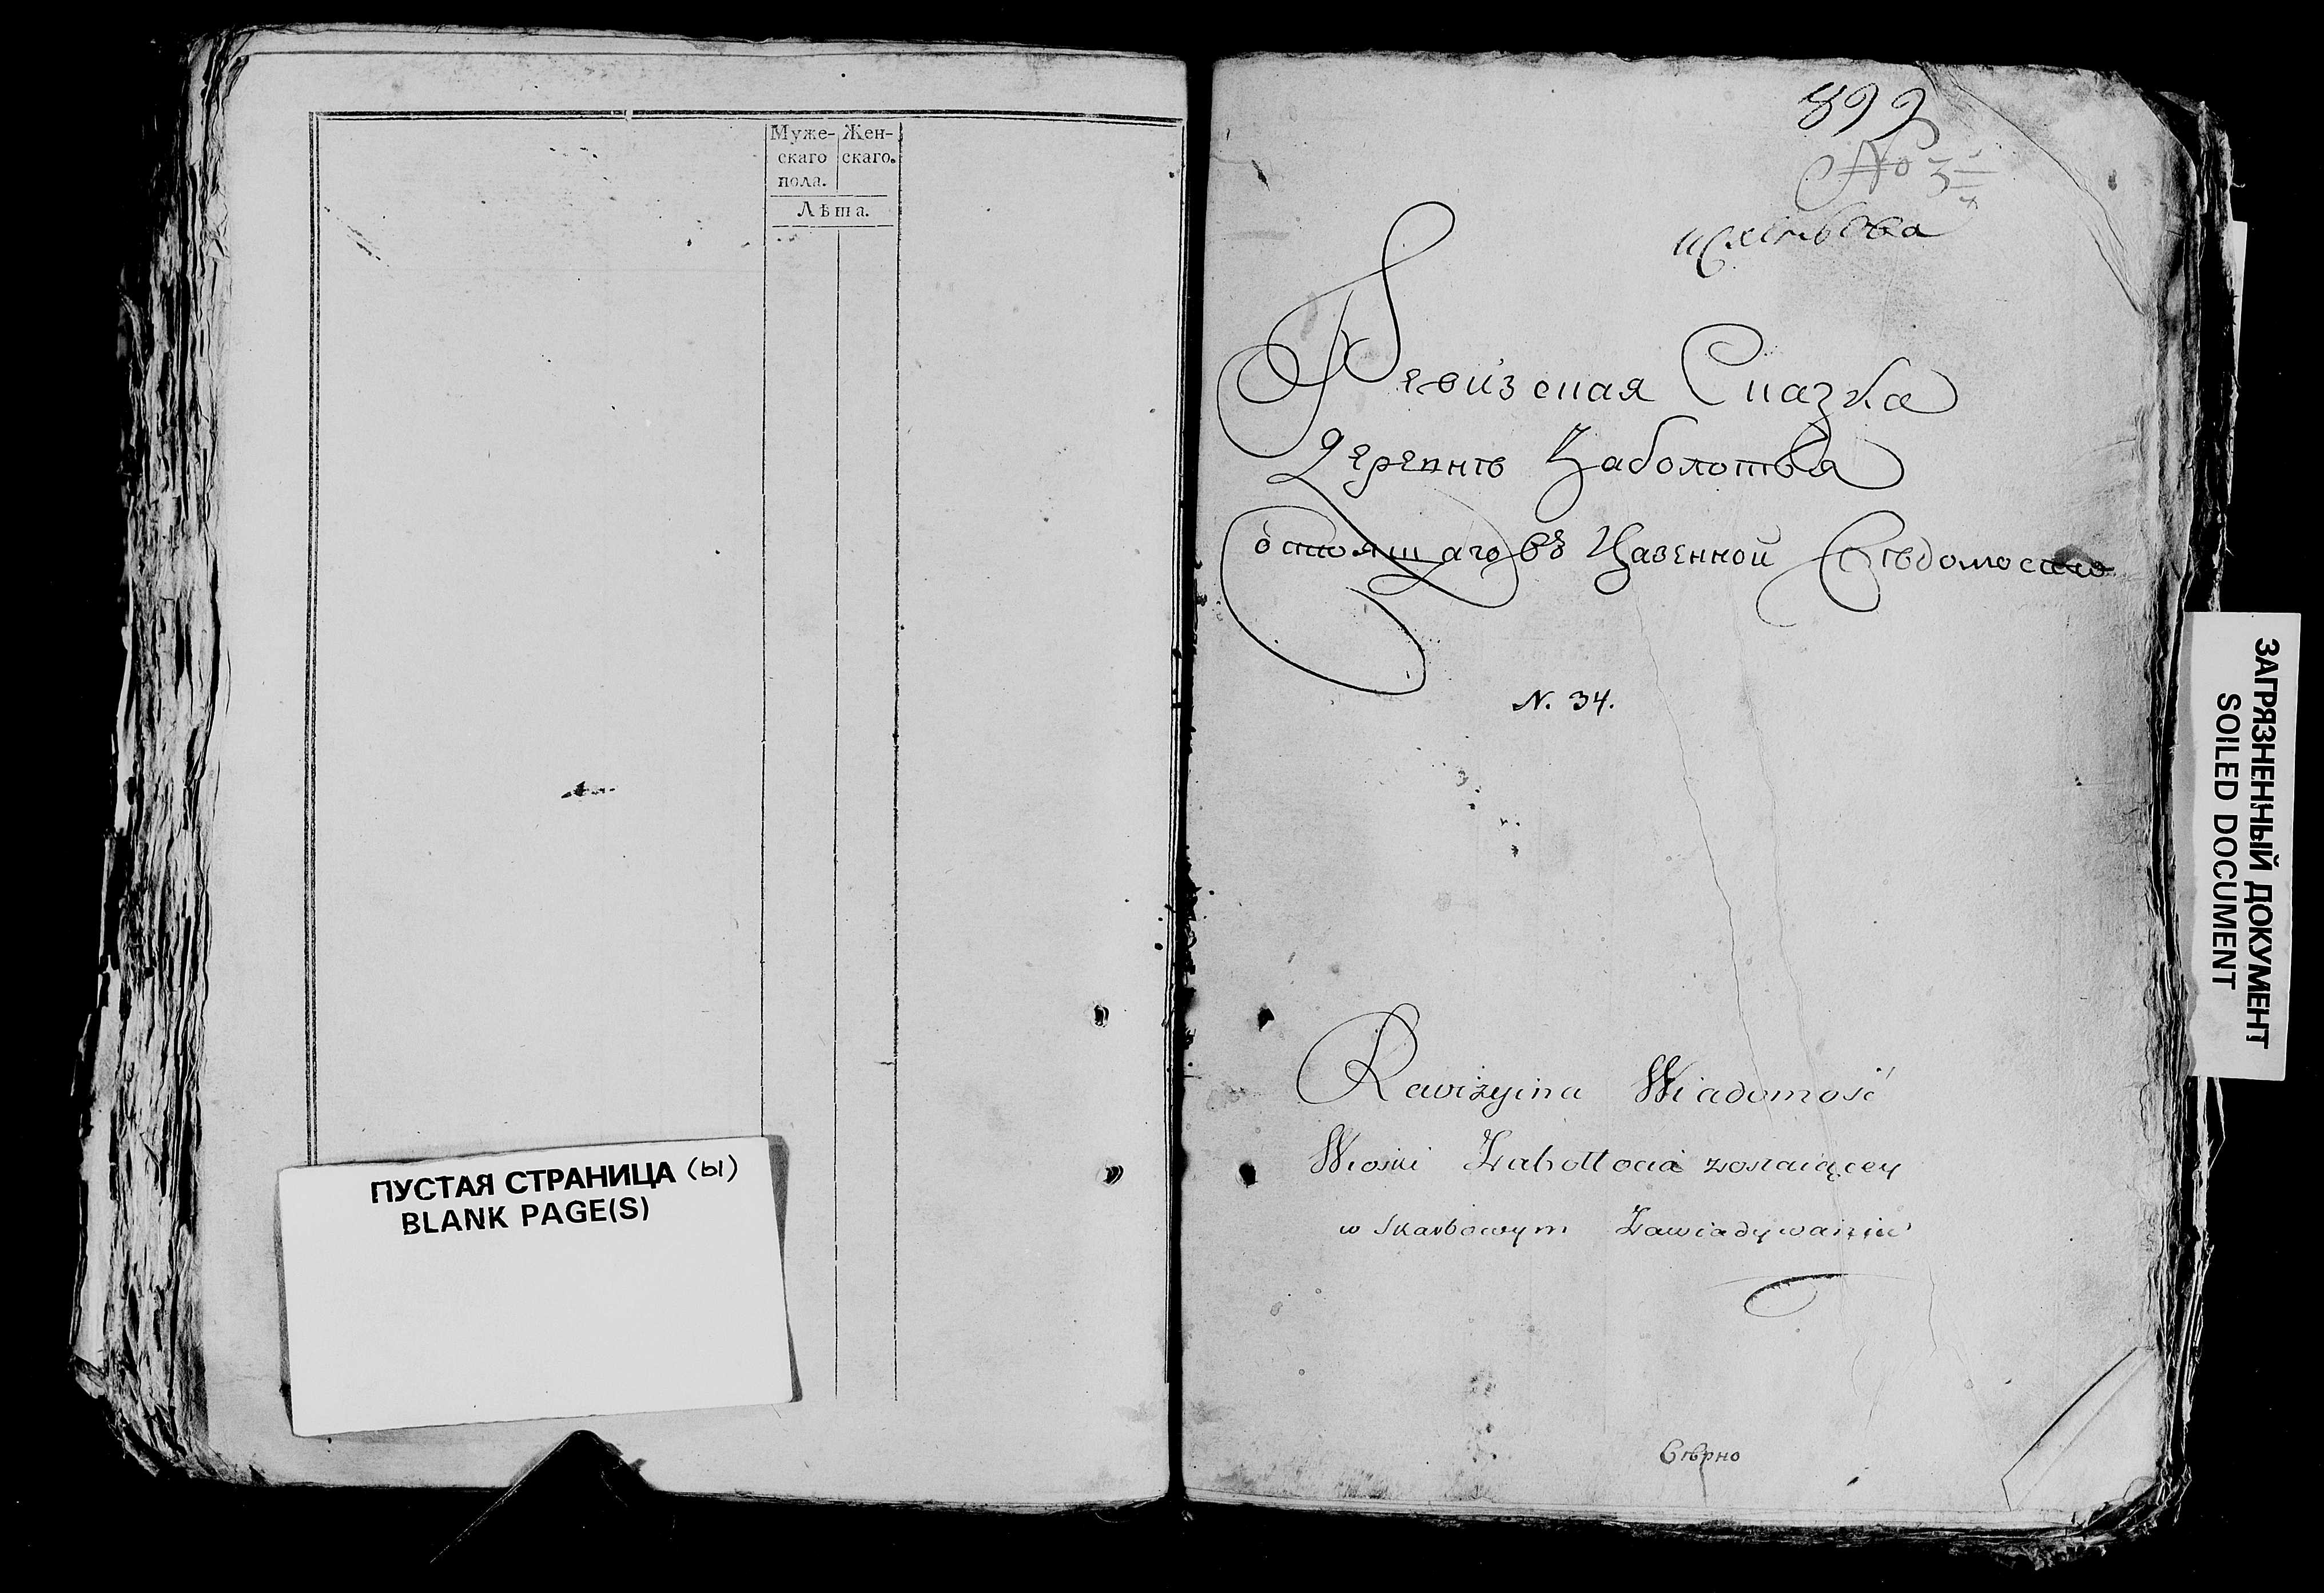 Муже- Жен-
скаго скаго.
пола.
Лѣта.
ПУСТАЯ СТРАНИЦА (ы)
BLANK PAGE(S)
899
No 3
Ревизская Сказка
Деревнѣ Заболотья
состоящаго въ Казенной Вѣдомости
N. 34.
Rewizyina Wiadomość
Wioski Zabołłocia zostaiącey
w Skarbowym Zawiadywaniu
Вѣрно
ЗАГРЯЗНЕННЫЙ ДОКУМЕНТ
SOILED DOCUMENT